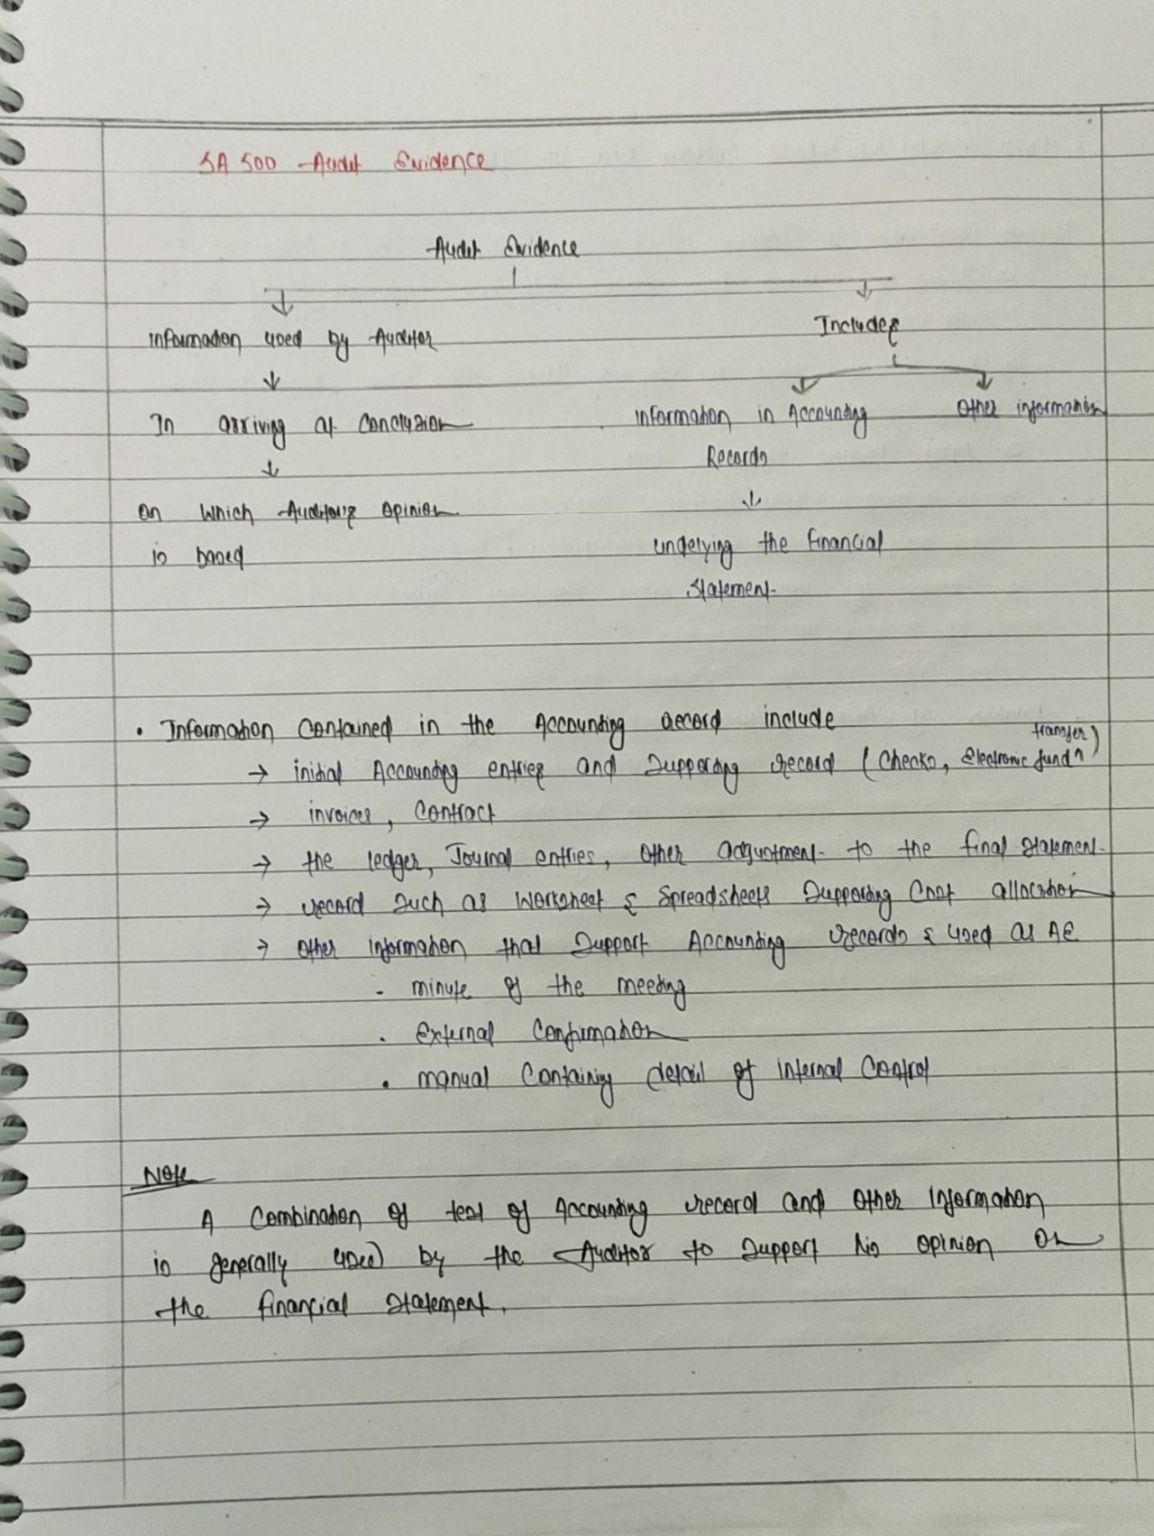 SA 500 - Audit Evidence
Audit Evidence
Information used by Auditor
Includes
In arriving at Conclusion
Information in Accounting
Other information
Records
on which Auditor's opinion
is based
underlying the financial
Statement
• Information contained in the Accounting record include
→ initial Accounting entries and Supporting record (Checks, Electronic fund transfer)
→ invoices, Contract
→ the ledger, Journal entries, other adjustment to the final statement
→ record such as Worksheet & Spreadsheets Supporting Cost allocation
→ other information that Support Accounting records & used as AE
- minute of the meeting
• External Confirmation
• manual Containing detail of internal Control
Note
A Combination of test of Accounting record and other Information
is generally used by the Auditor to Support his opinion on
the financial Statement.